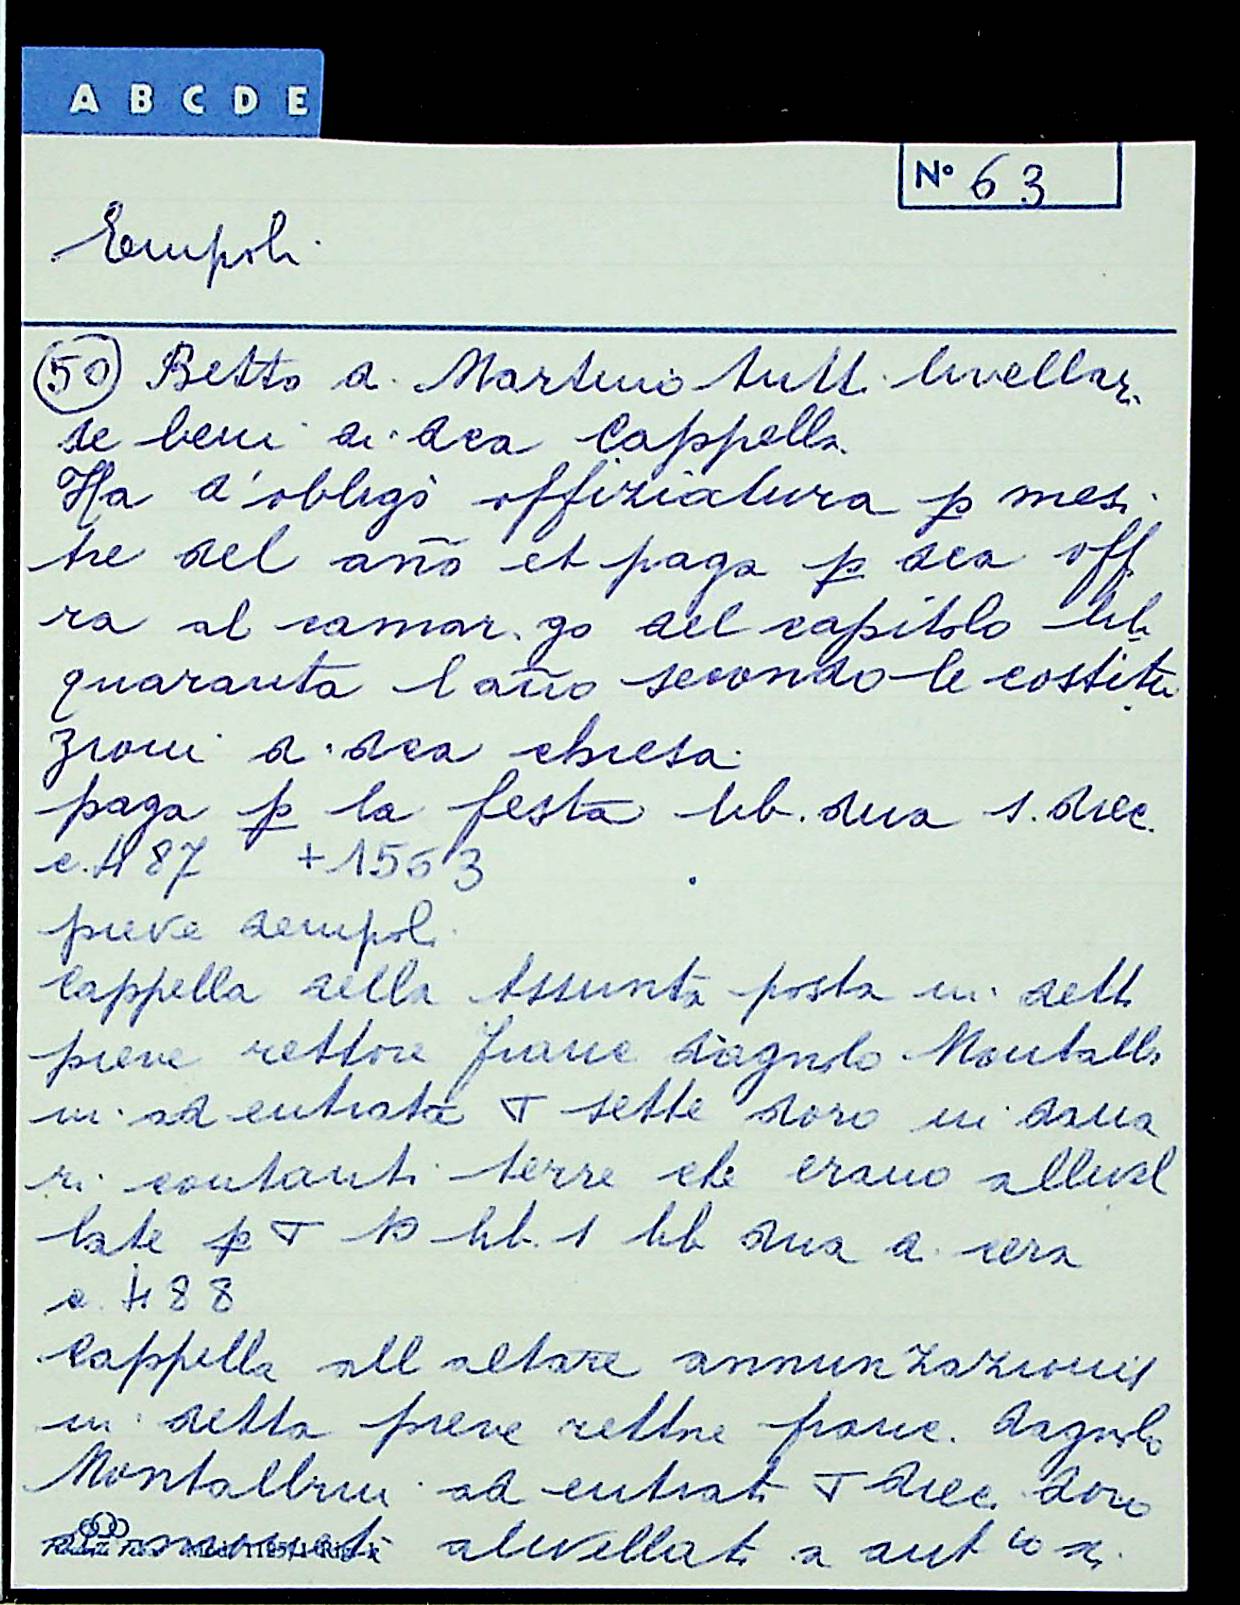 A B C D E
N° 63
Empoli
(50) Betto di Martino tutti livellari
de beni di dca Cappella
Ha d'obligò offiziatura p mesi
tre del año et paga p dca off
ra al camar.go del capitolo lib.
quaranta l año secondo le costitu
zioni di dca chiesa.
paga p la festa lib. dua s. dieci
c. 487 +1563
pieve dempoli
Cappella della Assunta posta in detta
pieve rettore franc dagnolo Montalbi
ni ad entrata ∇ sette doro in dana
ri contanti terre che erano allivel
late p ∇ 10 lib. 1 lib dua di cera
c. 488
Cappella all altare annunzazionis
in detta pieve rettore franc. dagnolo
Montalbini ad entrata ∇ dieci doro
alivellati a ant.co di